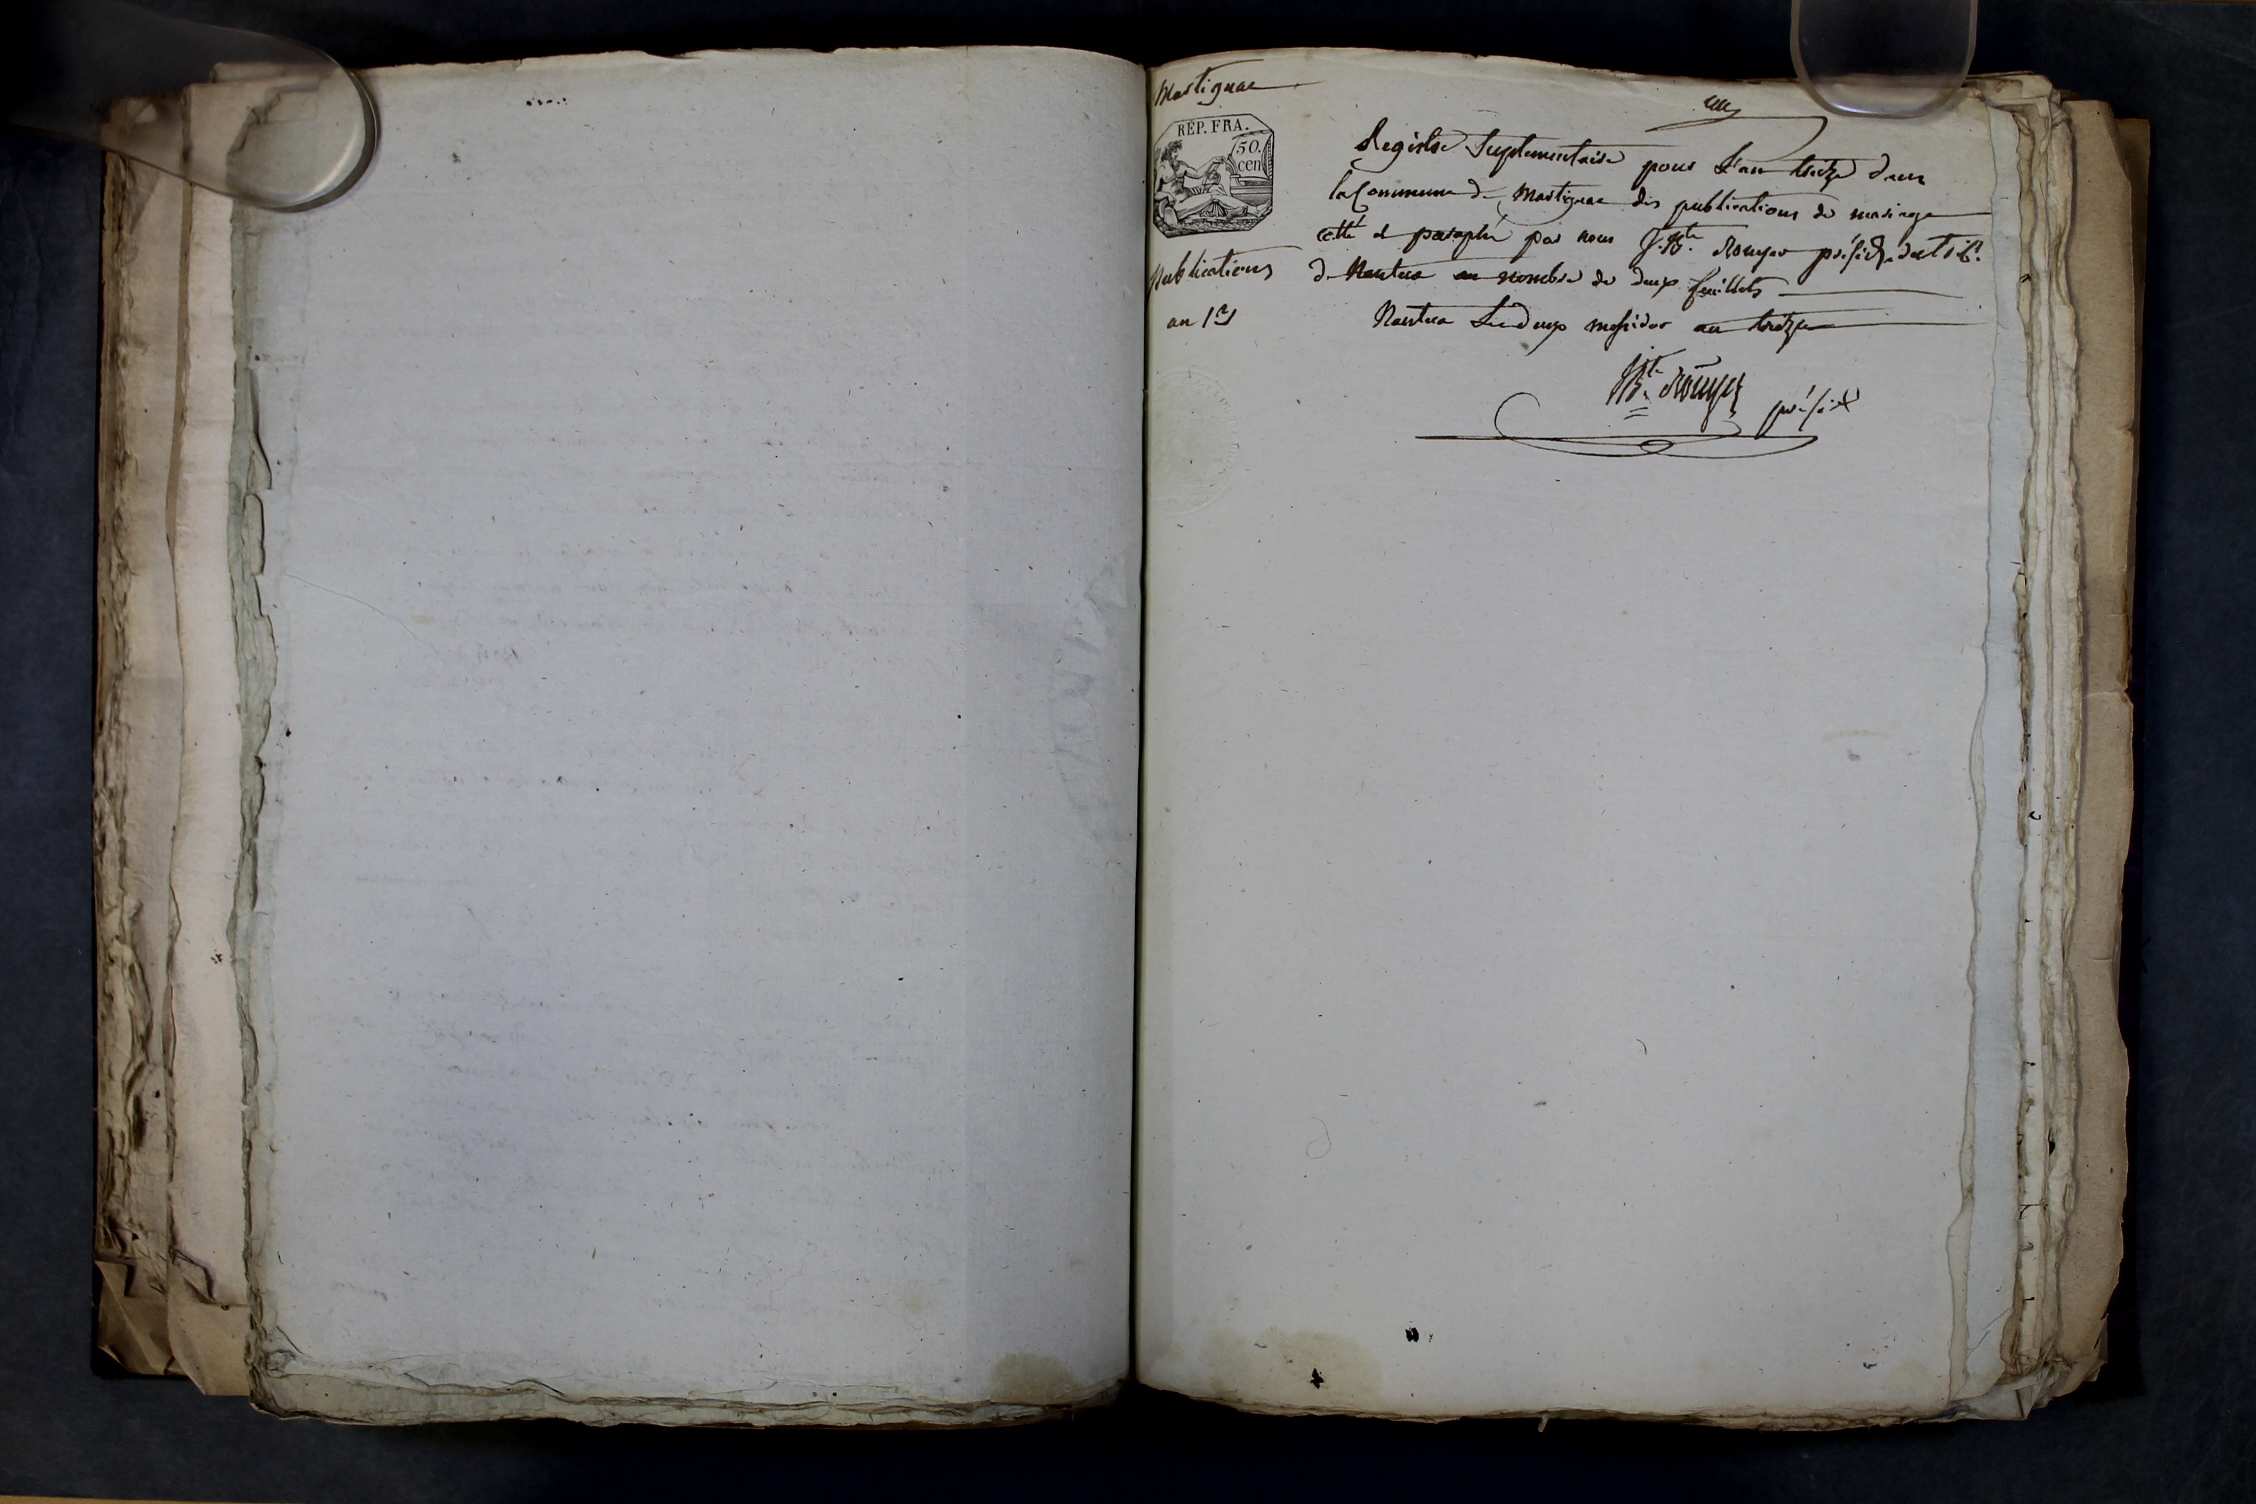 Martignac
un
RÉP. FRA.
50.
cen
Registre Suplementaire pour L'an treize dans
la Commune de Martignac des publications de mariage
cotté et paraphé par nous J. Bte. Rouyer présidt. du trib.
Publications
de Nantua au nombre de deux feuillets
an 13
Nantua Le deux messidor an treize
JBte. Rouyer présidt